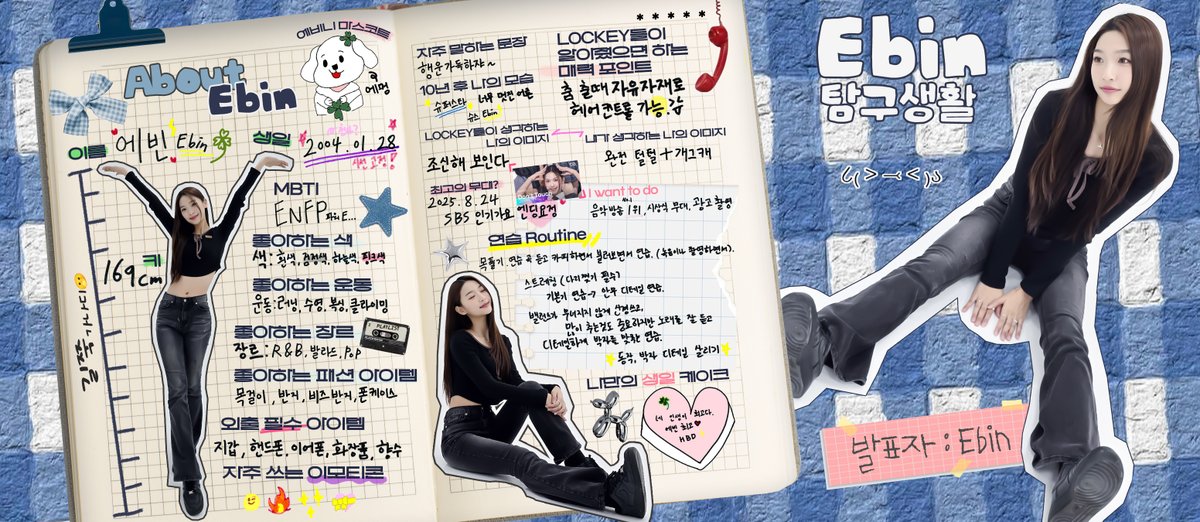 About
Ebin
에비니 마스코트
에멍
이름 에빈 Ebin
생일 2004. 01. 28
169cm
키
MBTI
ENFP
좋아하는 색
색: 흰색, 검정색, 하늘색, 핑크색
좋아하는 운동
운동: 러닝, 수영, 복싱, 클라이밍
좋아하는 장르
장르: R&B, 발라드, Pop
PLAYLIST
좋아하는 패션 아이템
목걸이, 반지, 비즈반지, 폰케이스
외출 필수 아이템
지갑, 핸드폰, 이어폰, 화장품, 향수
자주 쓰는 이모티콘
자주 말하는 문장
행운가득하쟈~
10년 후 나의 모습
슈퍼스타 너무 멋진 어른
슈스 Ebin
LOCKEY들이
알아줬으면 하는
매력 포인트
춤 출때 자유자재로
헤어컨트롤 가능.
LOCKEY들이 생각하는
나의 이미지
조신해 보인다
내가 생각하는 나의 이미지
완전 털털 + 개그캐
최고의 무대?
2025. 8. 24
SBS 인기가요 엔딩요정
I want to do
음악방송 1위, 시상식 무대, 광고 촬영
연습 Routine
목풀기, 연습 곡 듣고 카피하면서 불러보면서 연습. (녹음이나 촬영하면서).
스트레칭 (다리찢기 필수)
기본기 연습 → 안무 디테일 연습.
밸런스가 무너지지 않게 신경쓰고,
많이 추는것도 중요하지만 노래를 잘 듣고
디테일하게 박자를 맞춘 연습.
동작, 박자 디테일 살리기
나만의 생일 케이크
네 인생이 최고다.
에빈 최고
HBD
Ebin
탐구생활
발표자 : Ebin